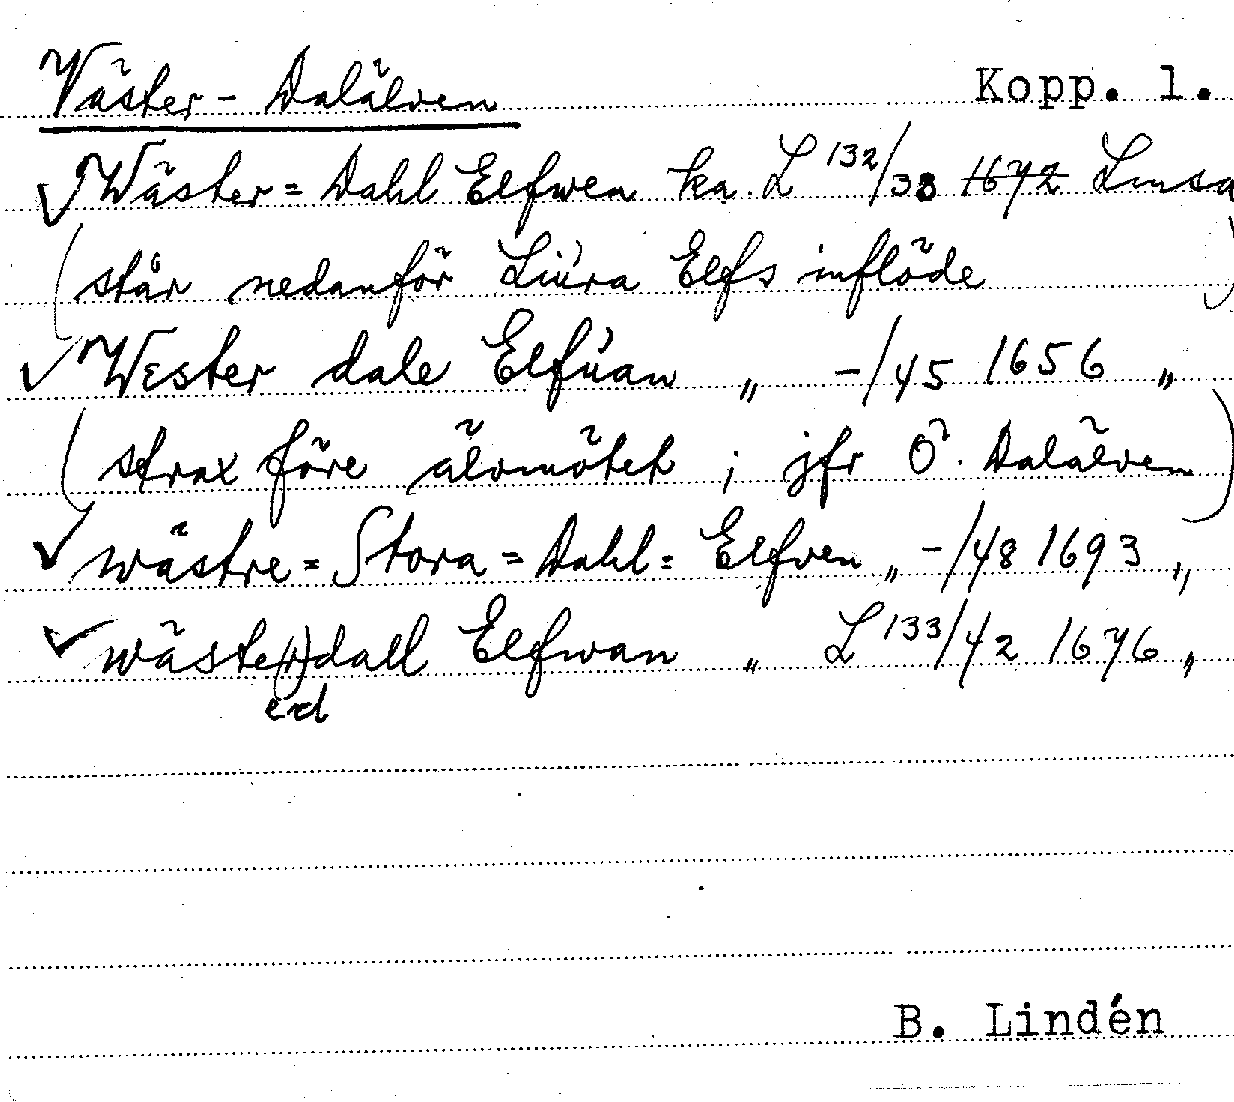 Väster-Dalälven Kopp. l.
Wäster=Dahl Elfwen ka. L 132/38 1672 Lmsa
(står nedanför Liúra Elfs inflöde)
Wester dale Elfúan „ -/45 1656 „
(strax före älvmötet ; jfr Ö. Dalälven)
wästre=Stora=Dahl=Elfven „ -/48 1693 „
wäste(r)dall Elfwan „ L 133/42 1676 „
ed
B. Lindén